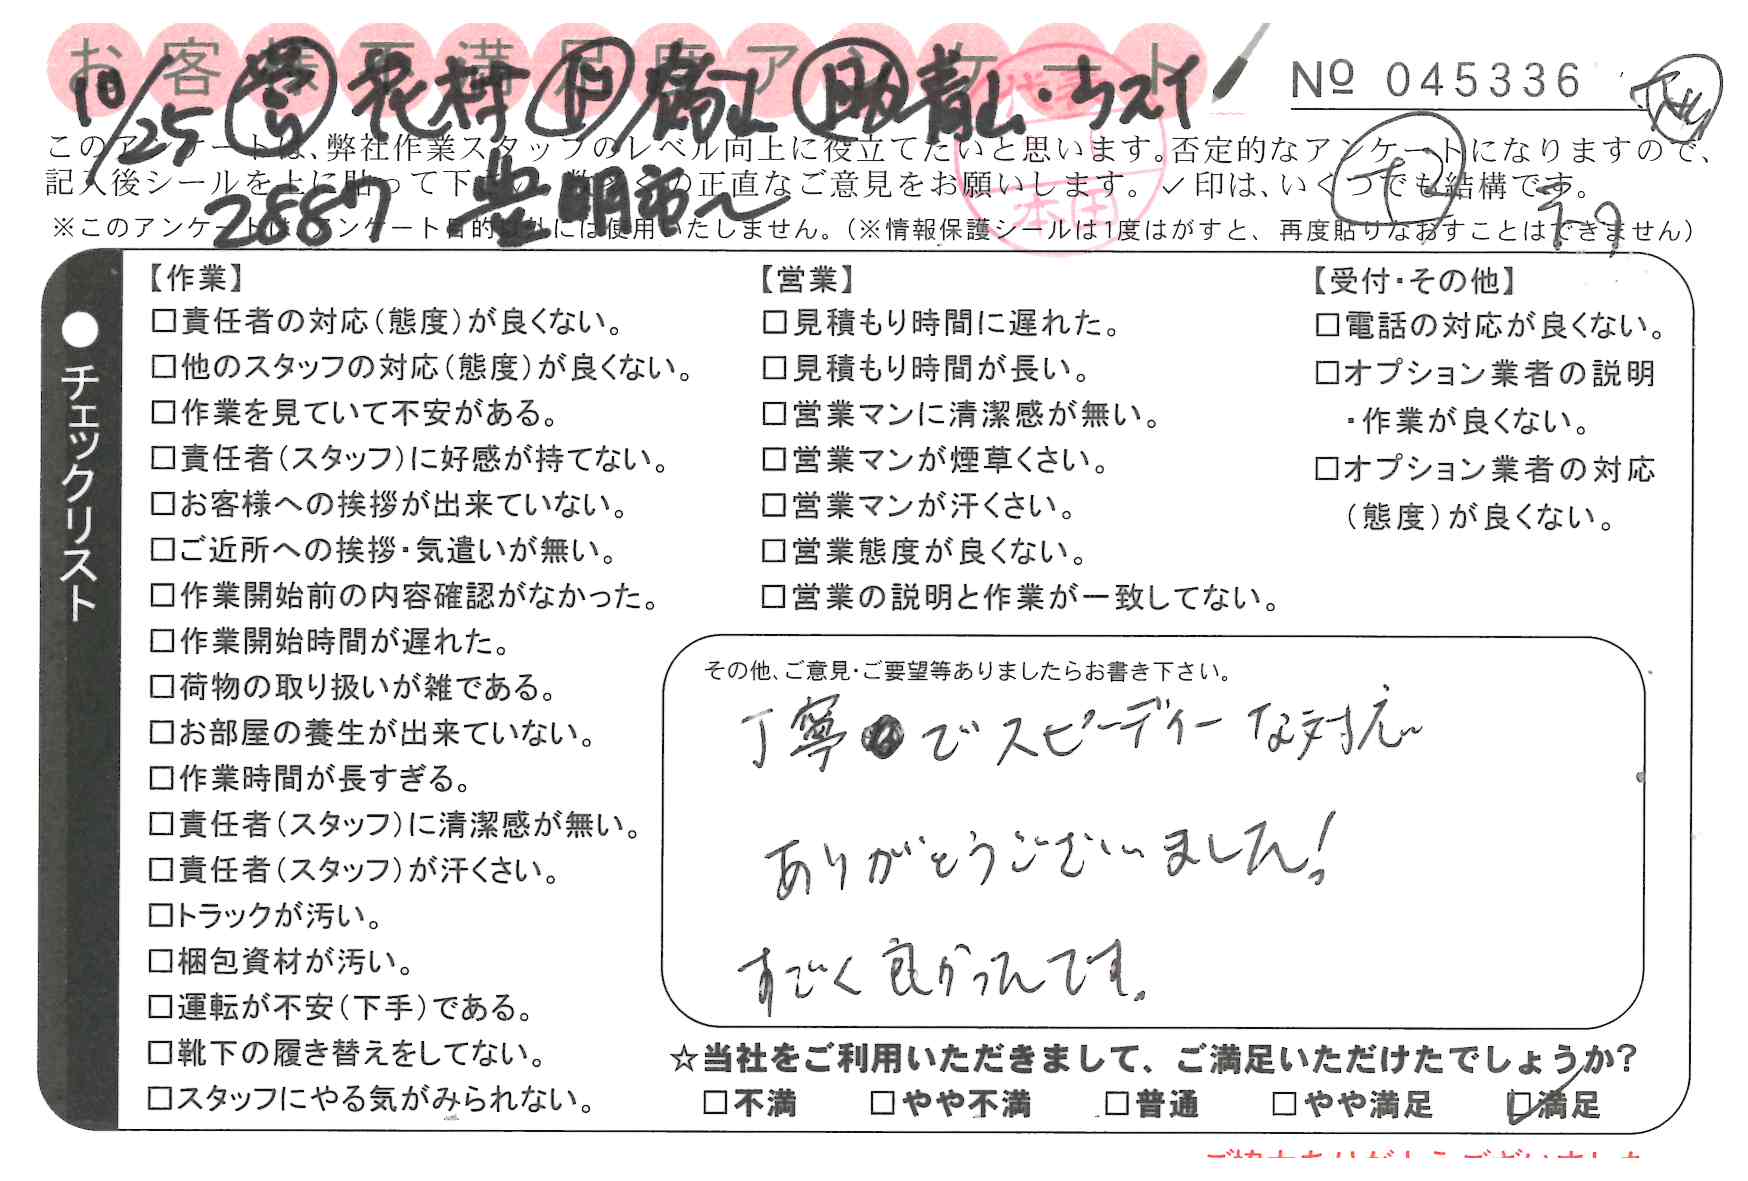 お客様不満足度アンケート
№ 045336
10/25 営 花村 助 青山・ウスイ
このアンケートは、弊社作業スタッフのレベル向上に役立てたいと思います。否定的なアンケートになりますので、
記入後シールを上に貼って下さい。数多くの正直なご意見をお願いします。✓印は、いくつでも結構です。
2887 豊明市へ
※このアンケートは、アンケート目的以外には使用いたしません。（※情報保護シールは1度はがすと、再度貼りなおすことはできません）
本田
●チェックリスト
【作業】
□責任者の対応（態度）が良くない。
□他のスタッフの対応（態度）が良くない。
□作業を見ていて不安がある。
□責任者（スタッフ）に好感が持てない。
□お客様への挨拶が出来ていない。
□ご近所への挨拶・気遣いが無い。
□作業開始前の内容確認がなかった。
□作業開始時間が遅れた。
□荷物の取り扱いが雑である。
□お部屋の養生が出来ていない。
□作業時間が長すぎる。
□責任者（スタッフ）に清潔感が無い。
□責任者（スタッフ）が汗くさい。
□トラックが汚い。
□梱包資材が汚い。
□運転が不安（下手）である。
□靴下の履き替えをしてない。
□スタッフにやる気がみられない。
【営業】
□見積もり時間に遅れた。
□見積もり時間が長い。
□営業マンに清潔感が無い。
□営業マンが煙草くさい。
□営業マンが汗くさい。
□営業態度が良くない。
□営業の説明と作業が一致してない。
【受付・その他】
□電話の対応が良くない。
□オプション業者の説明
・作業が良くない。
□オプション業者の対応
（態度）が良くない。
その他、ご意見・ご要望等ありましたらお書き下さい。
丁寧でスピーディーな対応
ありがとうございました!
すごく良かったです。
☆当社をご利用いただきまして、ご満足いただけたでしょうか?
□不満 □やや不満 □普通 □やや満足 ☑満足
ご協力ありがとうございました